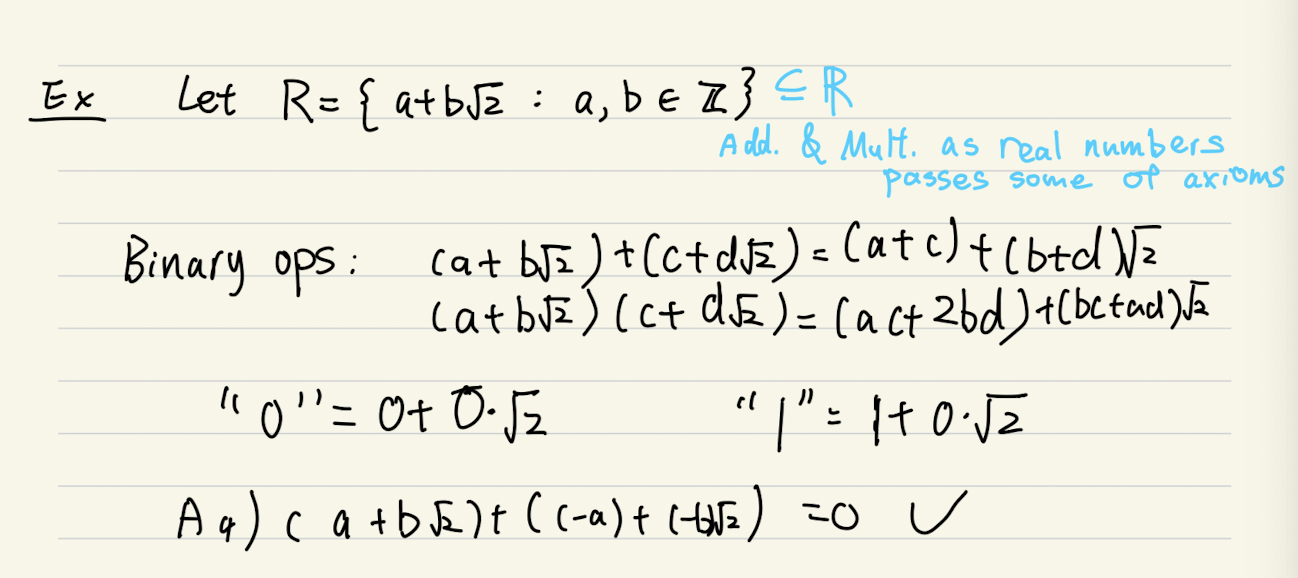 Ex Let R = { a+b√2 : a, b ∈ ℤ } ⊆ ℝ
Add. & Mult. as real numbers
passes some of axioms
Binary ops: (a+ b√2)+(c+d√2) = (a+c)+(b+d)√2
(a+b√2)(c+ d√2) = (ac+2bd)+(bc+ad)√2
"0" = 0+ 0·√2 "1" = 1+ 0·√2
A4) ( a +b√2)+ ((-a)+(-b)√2) =0 ✓